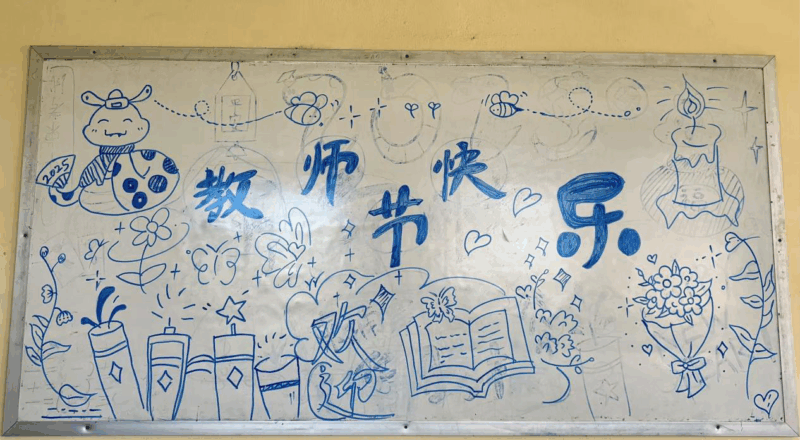 教师节快乐
2025
欢迎